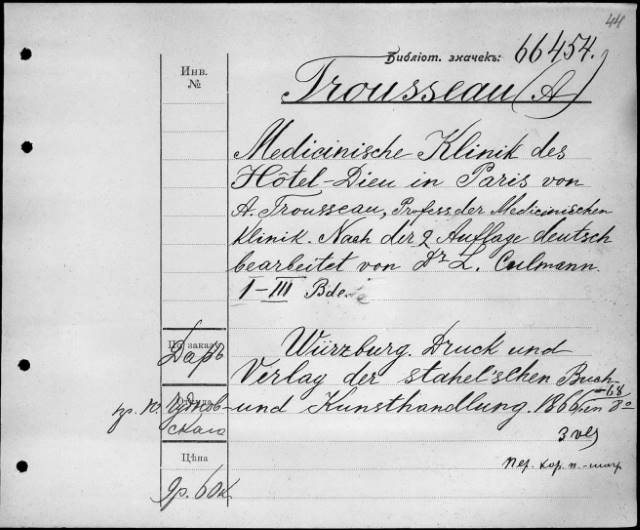 44
Библіот. значекъ: 66454.
Инв.
№
Trousseau (A)
Medicinische Klinik des
Hôtel-Dieu in Paris von
A. Trousseau, Profess der Medicinischen
Klinik. Nach der 2 Auflage deutsch
bearbeitet von Dr L. Culmann.
I-III Bde.
По заказу
Даръ
Würzburg. Druck und
Verlag der Stahel'schen Buch-
und Kunsthandlung. 1866-68 in 8º
3 vol
Цѣна
9р. 60к.